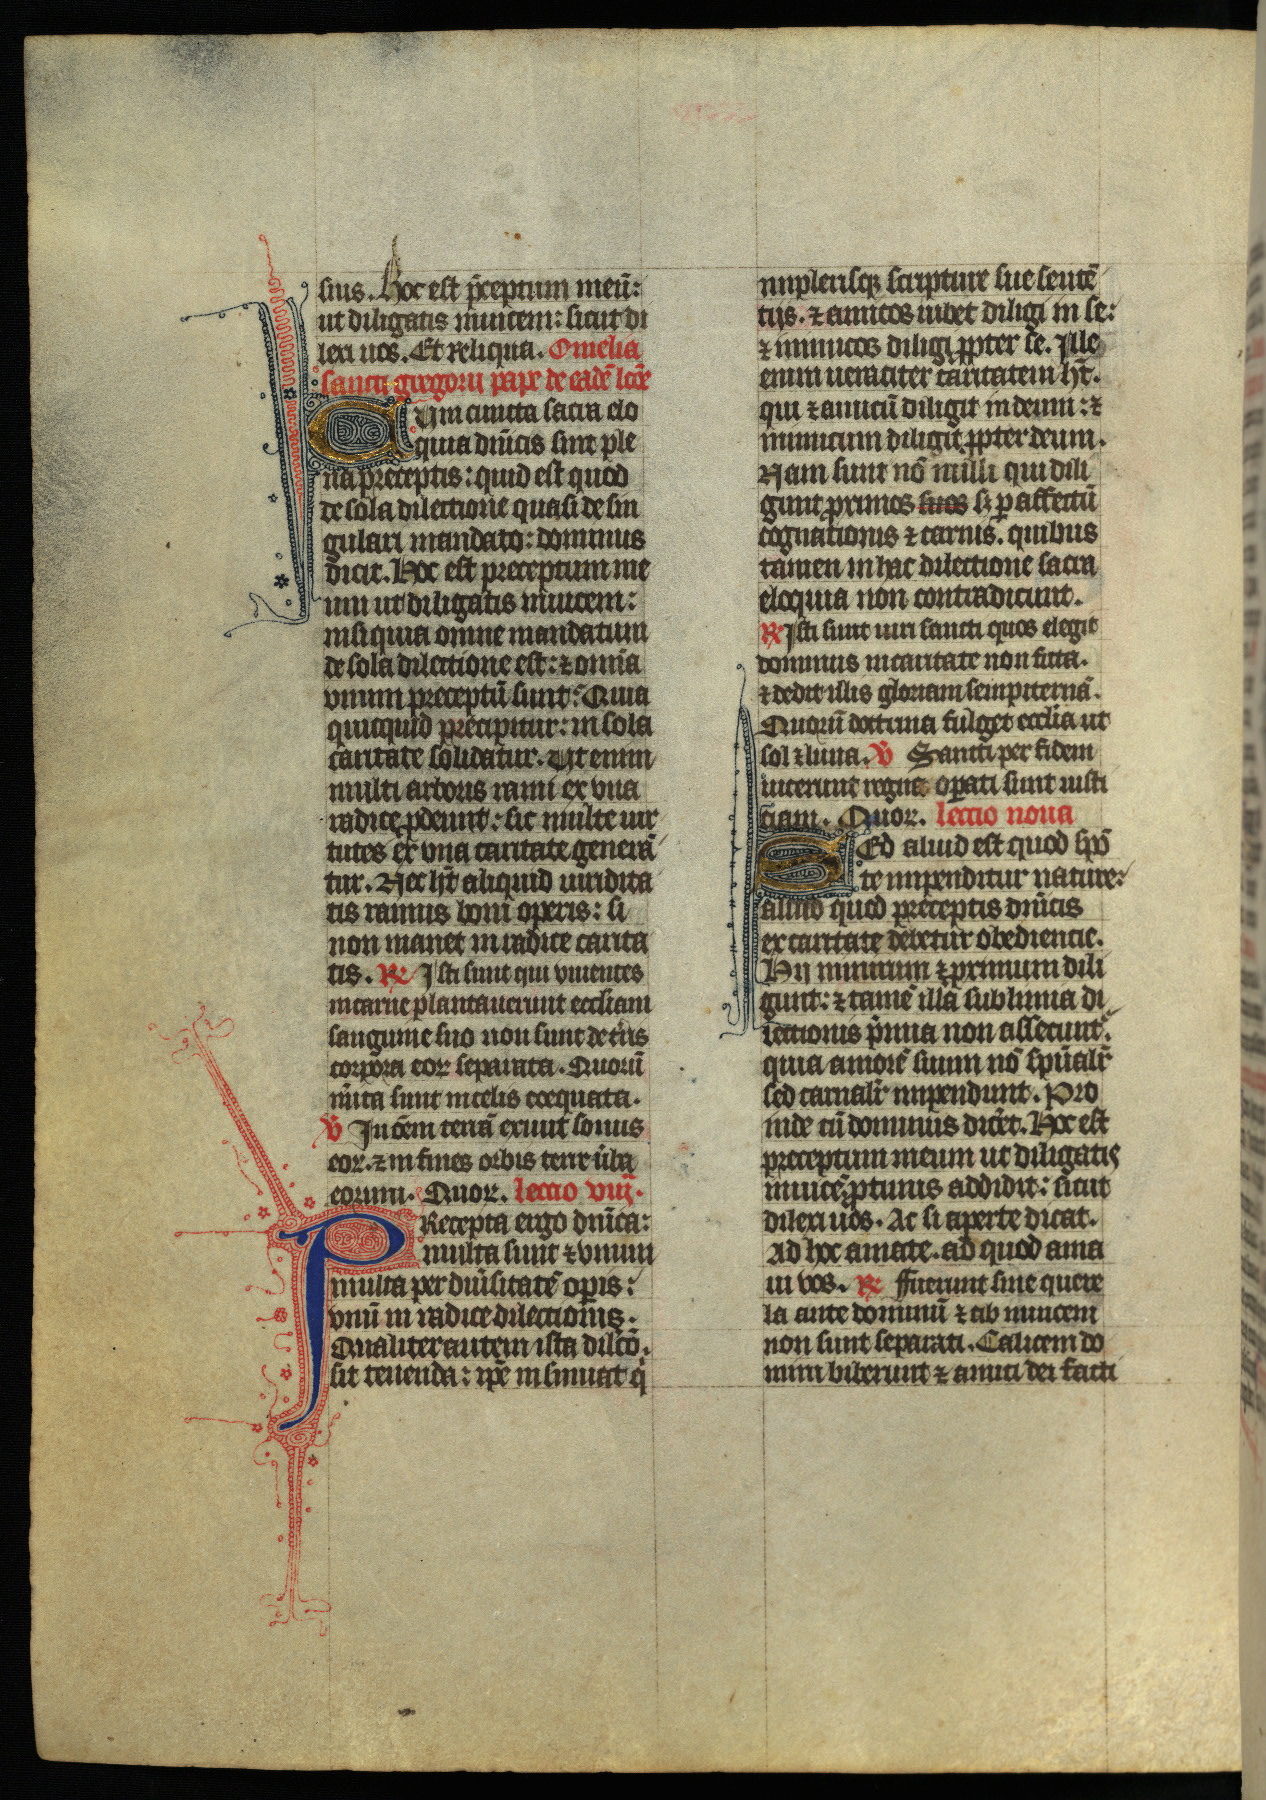 suis. Hoc est p̄ceptum meū:
ut diligatis inuicem: sicut di
lexi uos. Et reliqua. Omelia
sancti gregorii pape de eadē lcōe
CVm cuncta sacra elo
quia dn̄icis sint ple
na preceptis: quid est quod
de sola dilectione quasi de sin
gulari mandato: dominus
dicit. Hoc est preceptum me
um ut diligatis inuicem:
nisi quia omne mandatum
de sola dilectione est: ⁊ omīa
vnum preceptū sunt: Quia
quicquid precipitur: in sola
caritate solidatur. Vt enim
multi arboris rami ex vna
radice ꝓdeunt: sic multe uir
tutes ex vna caritate generā
tur. Nec hꝫ aliquid uiridita
tis ramus boni operis: si
non manet in radice carita
tis. ℟ Isti sunt qui viuentes
in carne plantauerunt eccliam
sanguine suo non sunt de tr̄is
corpora eoꝝ separata. Quorū
mītа sunt in celis coequata.
℣ In om̄em terrā exiuit sonus
eoꝝ. ⁊ in fines orbis terre ūba
eorum. Quoꝝ. lectio viij.
PRecepta ergo dn̄ica:
multa sunt ⁊ vnum
multa per diūsitatē opis:
vnū in radice dilectionis.
Qualiter autem ista dilcō.
sit tenenda: ip̄e insinuat q̇
in plerisqꝫ scripture sue sentē
tijs. ⁊ amicos iubet diligi in se:
⁊ inimicos diligi ꝓpter se. Ille
enim ueraciter caritatem hꝫ.
qui ⁊ amicū diligit in deum: ⁊
inimicum diligit ꝓpter deum.
Nam sunt nō nulli qui dili
gunt proximos suos sꝫ ꝑ affectū
cognationis ⁊ carnis. quibus
tamen in hac dilectione sacra
eloquia non contradicunt.
℟ Isti sunt uiri sancti quos elegit
dominus in caritate non ficta.
⁊ dedit illis gloriam sempiternā.
Quorū doctrina fulget ecclia ut
sol ⁊ luna. ℣ Sancti per fidem
uicerunt regna oꝑati sunt iusti
ciam. Quoꝝ. lectio nona
SEd aliud est quod spō
te inpenditur nature:
aliud quod preceptis dn̄icis
ex caritate debetur obediencie.
Hij nimirum ⁊ proximum dili
gunt: ⁊ tamē illa sublimia di
lectionis p̄mia non assecunt̄.
quia amorē suum nō sp̄ualr̄
sed carnalr̄ inpendunt. Pro
inde cū dominus dicēt. Hoc est
preceptum meum ut diligatis
inuicē. ꝓtinus addidit: sicut
dilexi uos. Ac si aperte dicat.
Ad hoc amate. ad quod ama
ui vos. ℟ Fuerunt sine quere
la ante dominū ⁊ ab inuicem
non sunt separati. Calicem do
mini biberunt ⁊ amici dei facti